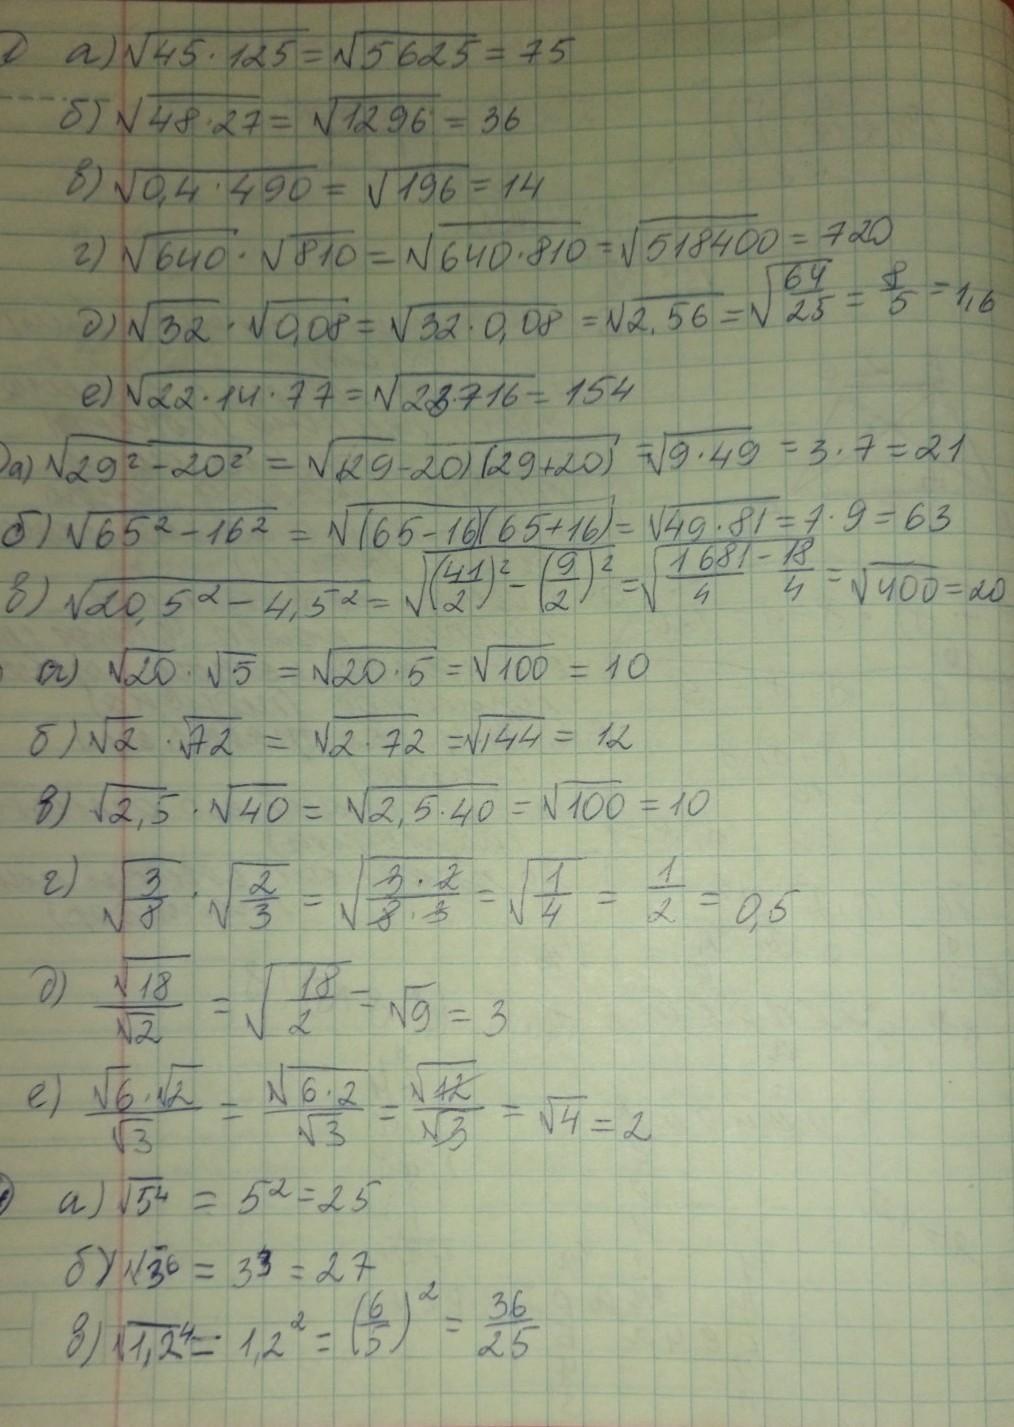 а) √45·125 = √5625 = 75
б) √48·27 = √1296 = 36
в) √0,4·490 = √196 = 14
г) √640 · √810 = √640·810 = √518400 = 720
д) √32 · √0,08 = √32·0,08 = √2,56 = √64/25 = 8/5 = 1,6
е) √22·14·77 = √23716 = 154
а) √29² - 20² = √(29-20)(29+20) = √9·49 = 3·7 = 21
б) √65² - 16² = √(65-16)(65+16) = √49·81 = 7·9 = 63
в) √20,5² - 4,5² = √(41/2)² - (9/2)² = √1681/4 - 18/4 = √400 = 20
а) √20 · √5 = √20·5 = √100 = 10
б) √2 · √72 = √2·72 = √144 = 12
в) √2,5 · √40 = √2,5·40 = √100 = 10
г) √3/8 · √2/3 = √3·2/8·3 = √1/4 = 1/2 = 0,5
д) √18/√2 = √18/2 = √9 = 3
е) √6·√2/√3 = √6·2/√3 = √12/√3 = √4 = 2
а) √5⁴ = 5² = 25
б) √3⁶ = 3³ = 27
в) √1,2⁴ = 1,2² = (6/5)² = 36/25